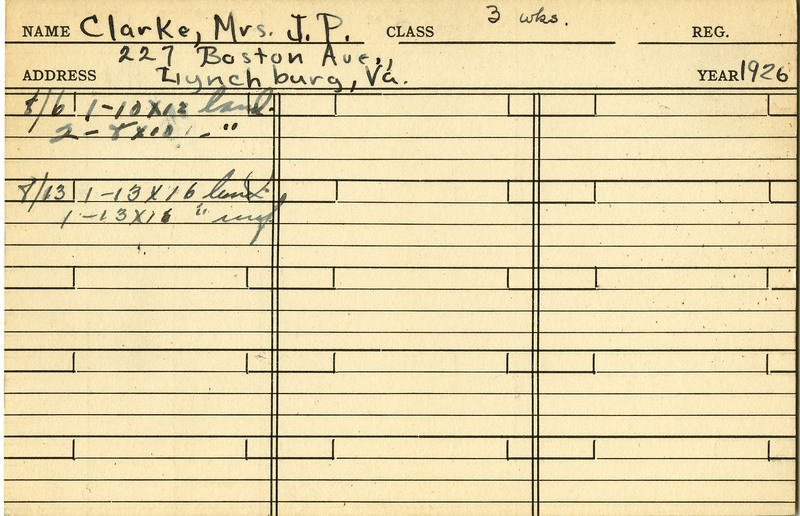 NAME Clarke, Mrs. J. P. CLASS 3 wks. REG.
227 Boston Ave.,
ADDRESS Lynchburg, Va. YEAR 1926
8/6 1-10x12 land.
2-8x10 - "
8/13 1-13x16 land.
1-13x16 "